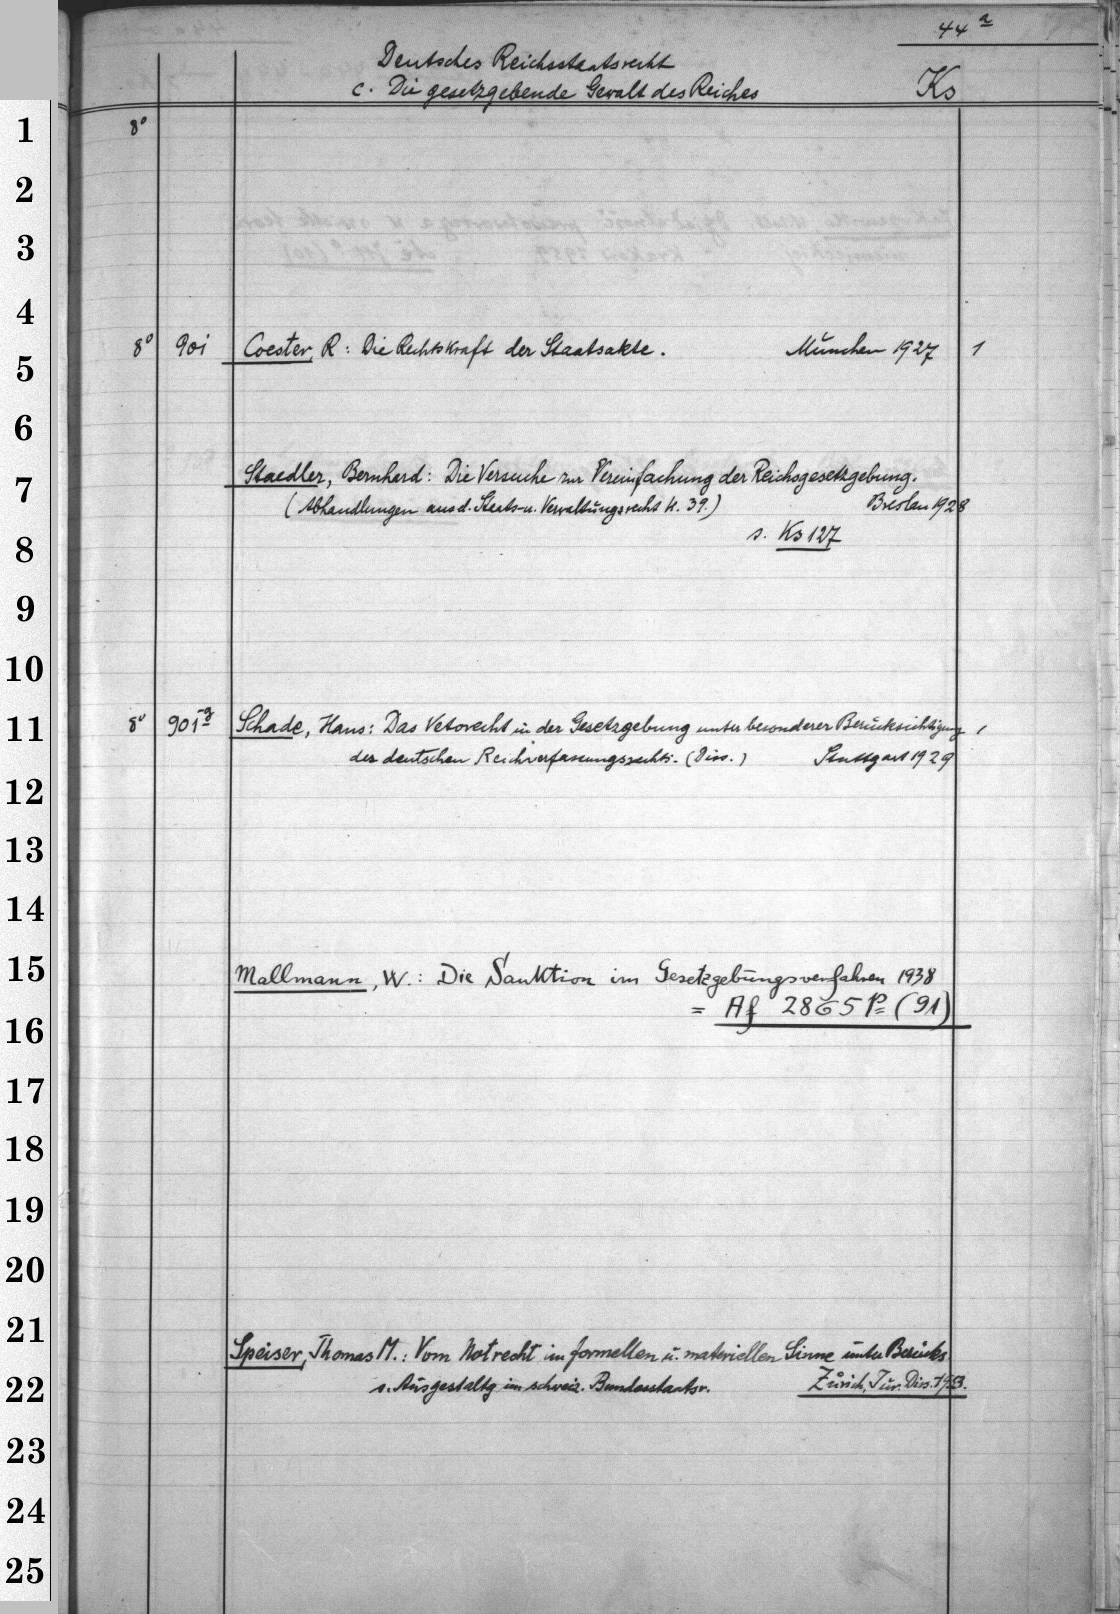 44 a
Deutsches Reichsstaatsrecht
c. Die gesetzgebende Gewalt des Reiches Ks
1 8°
2
3
4
8° 901 Coester, R: Die Rechtskraft der Staatsakte. München 1927 1
5
6
7 Staedler, Bernhard: Die Versuche zur Vereinfachung der Reichsgesetzgebung.
(Abhandlungen aus d. Staats- u. Verwaltungsrecht H. 39.) Breslau 1928
8 s. Ks 127
9
10
11 8° 901 g Schade, Hans: Das Vetorecht in der Gesetzgebung unter besonderer Berücksichtigung 1
des deutschen Reichverfassungsrechts. (Diss.) Stuttgart 1929
12
13
14
15 Mallmann, W.: Die Sanktion im Gesetzgebungsverfahren 1938
16 = Af 2865 P (91)
17
18
19
20
21 Speiser, Thomas M.: Vom Notrecht im formellen u. materiellen Sinne unter Berücks.
22 s. Ausgestaltg im schweiz. Bundesstaatsr. Zürich, Jur. Diss. 1953.
23
24
25